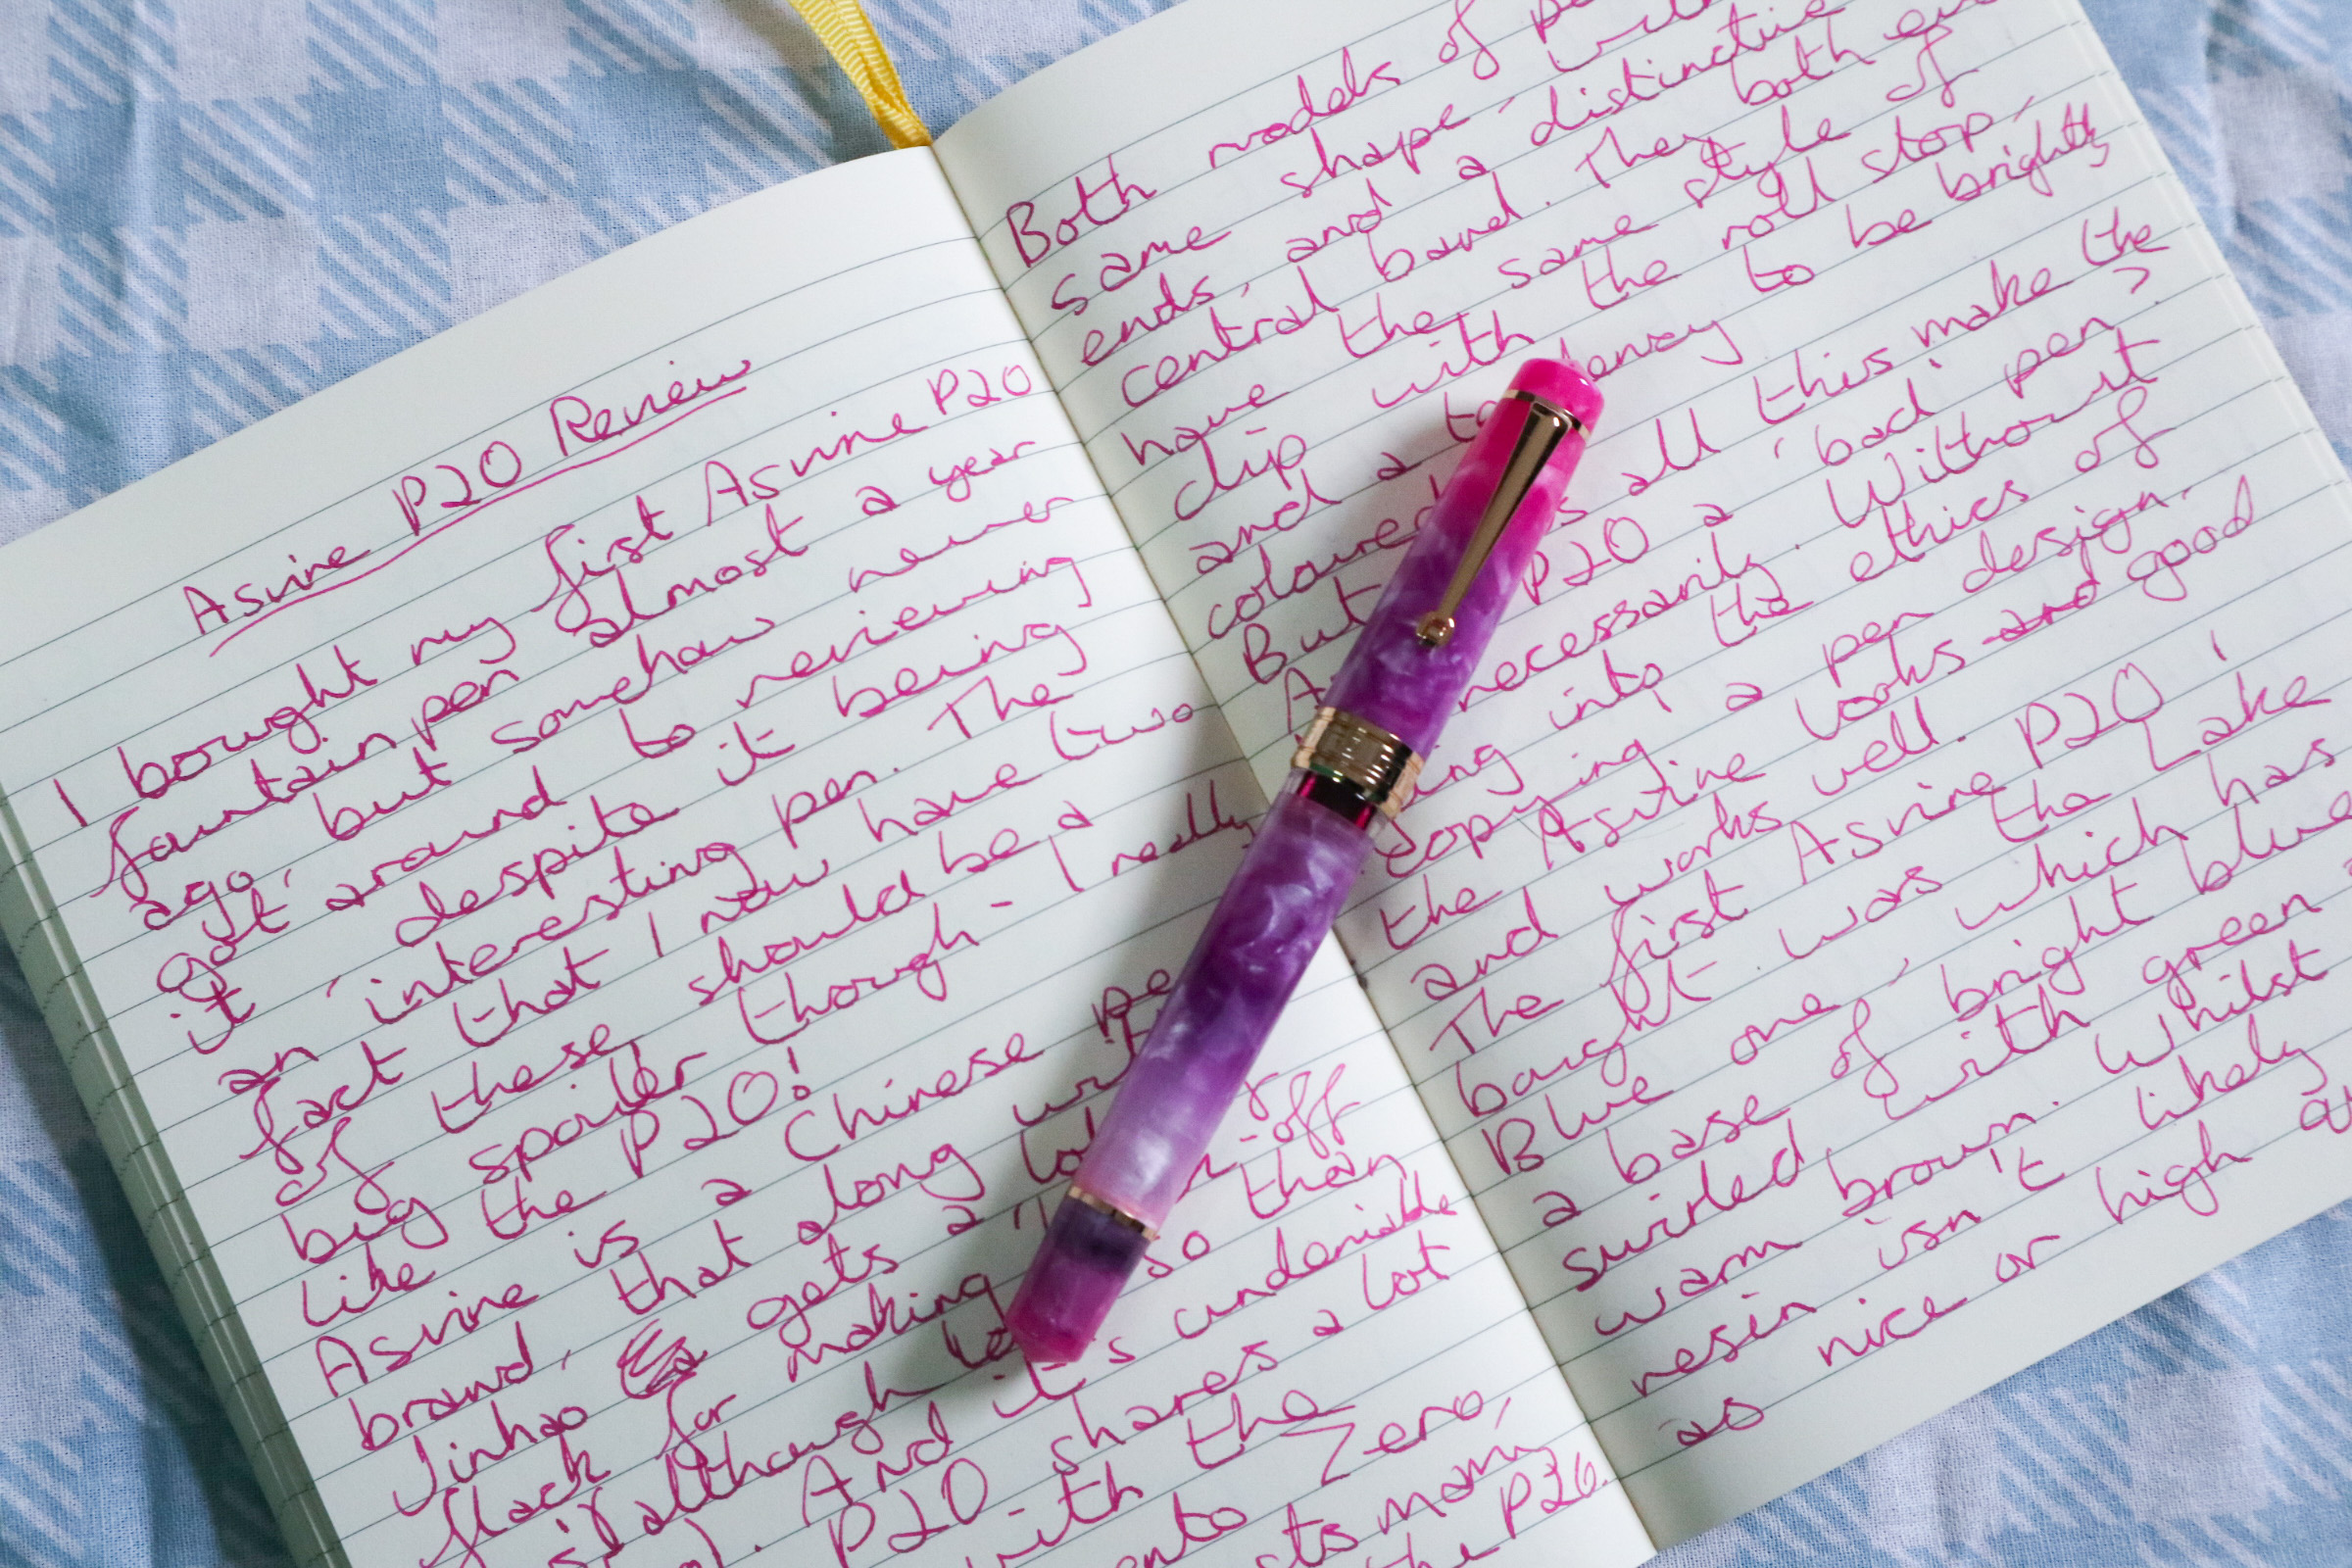 Asvine P20 Review
I bought my first Asvine P20
fountain pen almost a year
ago, but somehow never
got around to reviewing
it, despite it being
an interesting pen. The
fact that I now have two
of these, should be a
big spoiler though - I really
like the P20!
Asvine is a Chinese pe
brand, that along with
Jinhao gets a lot of
flack for making -off
although le so than
. And it's undeniable
P20 shares a lot
with the
ento Zero,
sts many
the P36.
Both models of pe
same shape, with
ends, and a distinctive
central band. They both
have the same style of
clip with the roll stop,
and a to be brightly
coloured
But s all this make the
P20 a 'bad' pen?
necessarily. Without
ing into the ethics of
copying a pen design,
the Asvine looks good
and works well.
The first Asvine P20 I
bought was the Lake
Blue one, which has
a base of bright blue
swirled with green
warm brown. Whilst
resin isn't likely
as nice or high